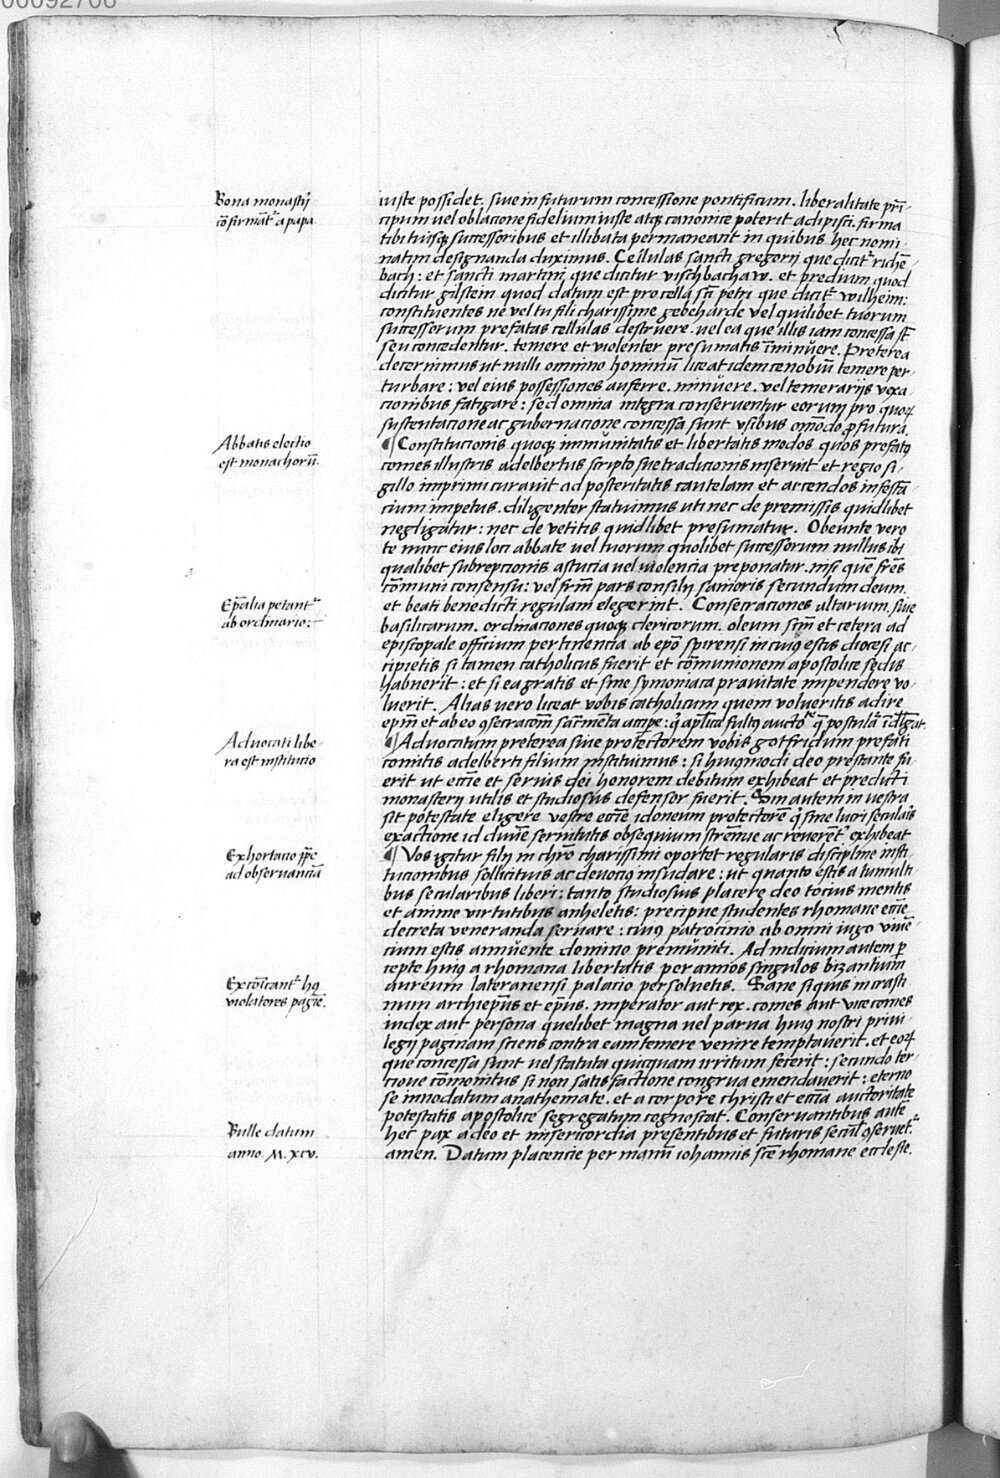 00092706
Bona monastij
cõfirmãt᷑ a papa
iuste possidet. siue in futurum concessione pontificum. liberalitate pñ-
cipum uel oblacione fidelium iuste atq; canonice poterit adipisci. firma
tibi tuisq; successoribus et illibata permaneant in quibus hec nomi
natim designanda duximus. Cellulas sancti gregorij que dicit᷑ richē-
bach: et sancti martini que dicitur vischbachaw. et predium quod
dicitur gilstein quod datum est pro cella sci petri que dicit᷑ wilheim:
constituentes ne uel tu fili charissime gebeharde vel quilibet tuorum
successorum prefatas cellulas destruere. uel ea que illis iam concessa st̄
seu concedentur. temere et violenter presumatis iminuere. Preterea
decernimus ut nulli omnino hominū liceat idem cenobiū temere per-
turbare: vel eius possessiones auferre. minuere. vel temerarijs vexa-
cionibus fatigare: sed omnia integra conserventur eorum pro quoꝝ
sustentacione ac gubernacione concessa sunt vsibus om̄odo profutura.
Abbatis electio
est monachorū.
¶ Constitucionis quoq; immunitatis et libertatis modos quos prefatꝰ
comes illustris adelbertus scripto sue tradicionis inseruit et regio si-
gillo imprimi curauit ad posteritatis cautelam et arcendos infesta
cium impetus. diligenter statuimus uti nec de premissis quidlibet
negligatur: nec de vetitis quidlibet presumatur. Obeunte vero
te nunc eius loci abbate uel tuorum quolibet successorum nullus ibi
qualibet subrepcionis astucia uel violencia preponatur. nisi quē frēs
cōmuni consensu: vel frm̄ pars consilij sanioris secundum deum.
Ep̄alia petant᷑
ab ordinario:-
et beati benedicti regulam elegerint. Consecraciones altarium. siue
basilicarum. ordinaciones quoq; clericorum. oleum scm̄ et cetera ad
episcopale officium pertinencia ab epō spirensi in cuiꝰ estis diocesi ac-
cipietis si tamen catholicus fuerit et cōmunionem apostolice sedis
habuerit: et si ea gratis et sine symoniaca prauitate impendere vo-
luerit. Alias uero liceat vobis catholicum quem volueritis adire
ep̄m et ab eo
Aduocati libe-
ra est institucio
¶ Aduocatum preterea siue protectorem vobis gotfridum prefati
comitis adelberti filium instituimus: si huiꝰmodi deo prestante fu-
erit ut eccīe et seruis dei honorem debitum exhibeat et predicti
monasterij utilis et studiosus defensor fuerit. Sin autem in uestra
sit potestate eligere vestre eccīe idoneum protectorē qui sine lucri secularis
exactione id diuīe seruitutis obsequium strēnue ac reuerent᷑ exhibeat
Exhortacio ppe
ad obseruanciā
¶ Vos igitur filij in chrō charissimi oportet regularis discipline insti-
tucionibus sollicitius ac deuociꝰ insudare: ut quanto estis a tumulti-
bus secularibus liberi: tanto studiosius placere deo tocius mentis
et anime virtutibus anheletis: precipue studentes rhomane eccīe
decreta veneranda seruare: cuiꝰ patrocinio ab omni iugo viuē-
cium estis annuente domino premuniti. Ad indicium autem p̱
cepte huiꝰ a rhomana libertatis per annos singulos bizantium
Excōīcant᷑ hꝰ
violatores pagīe.
aureum lateranensi palacio persoluetis. Sane si quis in crasti
num archiep̄us et ep̄us. imperator aut rex. comes aut vicecomes
iudex aut persona quelibet magna uel parua huiꝰ nostri priui-
legij paginam sciens contra eam temere venire temptauerit. et eoꝝ
que concessa sunt uel statuta quicquam irritum fecerit: secundo ter-
cioue cōmonitus si non satisfactione congrua emendauerit: eterno
se innodatum anathemate. et a corpore christi et eccīa auctoritate
potestatis apostolice segregatum cognoscat. Conseruantibus autē
Bulle datum
anno. M. xcv.
hec pax a deo et misericordia presentibus et futuris seculis ꝯseruet᷑
amen. Datum placencie per manū iohannis scē rhomane ecclesie.